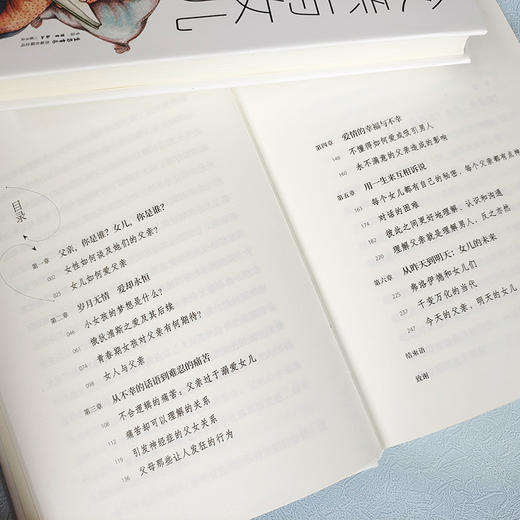 父亲与女儿
目录
第一章 父亲，你是谁？女儿，你是谁？
002 女性如何谈及她们的父亲？
025 女儿如何爱父亲
第二章 岁月无情 爱却永恒
046 小女孩的梦想是什么？
061 俄狄浦斯之爱及其后续
074 青春期女孩对父亲有何期待？
098 女人与父亲
第三章 从不幸的话语到难忍的痛苦
108 不合逻辑的痛苦：父亲过于溺爱女儿
112 痛苦却可以理解的关系
119 引发神经症的父女关系
136 父母那些让人发狂的行为
第四章 爱情的幸福与不幸
148 不懂得如何爱或吸引男人
160 永不满意的父亲造成的影响
第五章 用一生来互相诉说
168 每个女儿都有自己的秘密，每个父亲都有点神
174 对话的困难
182 彼此之间更好地理解、认识和沟通
205 理解父亲就是理解男人，反之亦然
第六章 从昨天到明天：女儿的未来
225 弗洛伊德和女儿们
237 千变万化的当代
245 今天的父亲，明天的女儿
结束语
致谢